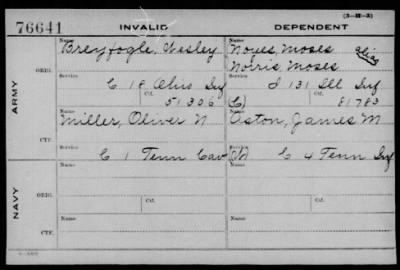 (3-HF-X)
76641 INVALID DEPENDENT
Name Name
Breyfogle, Wesley Noyes, Moses alias
Norris, Moses
ARMY
ORIG.
Service Service
C 18 Ohio Inf I 131 Ill Inf
Ctf. Ctf.
51306 81783
Name Name
Miller, Oliver N Oston, James M
CTF.
Service Service
C 1 Tenn Cav C 4 Tenn Inf
NAVY
Name Name
ORIG.
Service Ctf. Service Ctf.
Name Name
CTF.
Service Service